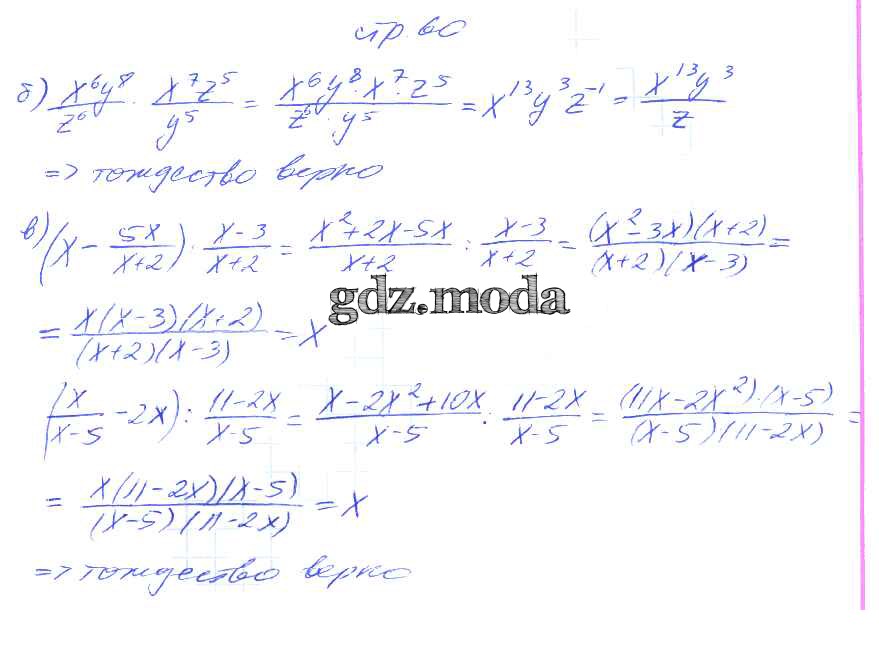 стр. 60
б) x⁶y⁸/z⁶ · x⁷z⁵/y⁵ = x⁶y⁸·x⁷·z⁵/z⁶·y⁵ = x¹³y³z⁻¹ = x¹³y³/z
=> тождество верно
в) (x − 5x/x+2) · x−3/x+2 = x²+2x−5x/x+2 : x−3/x+2 = (x²−3x)(x+2)/(x+2)(x−3) =
gdz.moda
= x(x−3)(x+2)/(x+2)(x−3) = x
(x/x−5 − 2x) : 11−2x/x−5 = x−2x²+10x/x−5 : 11−2x/x−5 = (11x−2x²)·(x−5)/(x−5)(11−2x) =
= x(11−2x)(x−5)/(x−5)(11−2x) = x
=> тождество верно